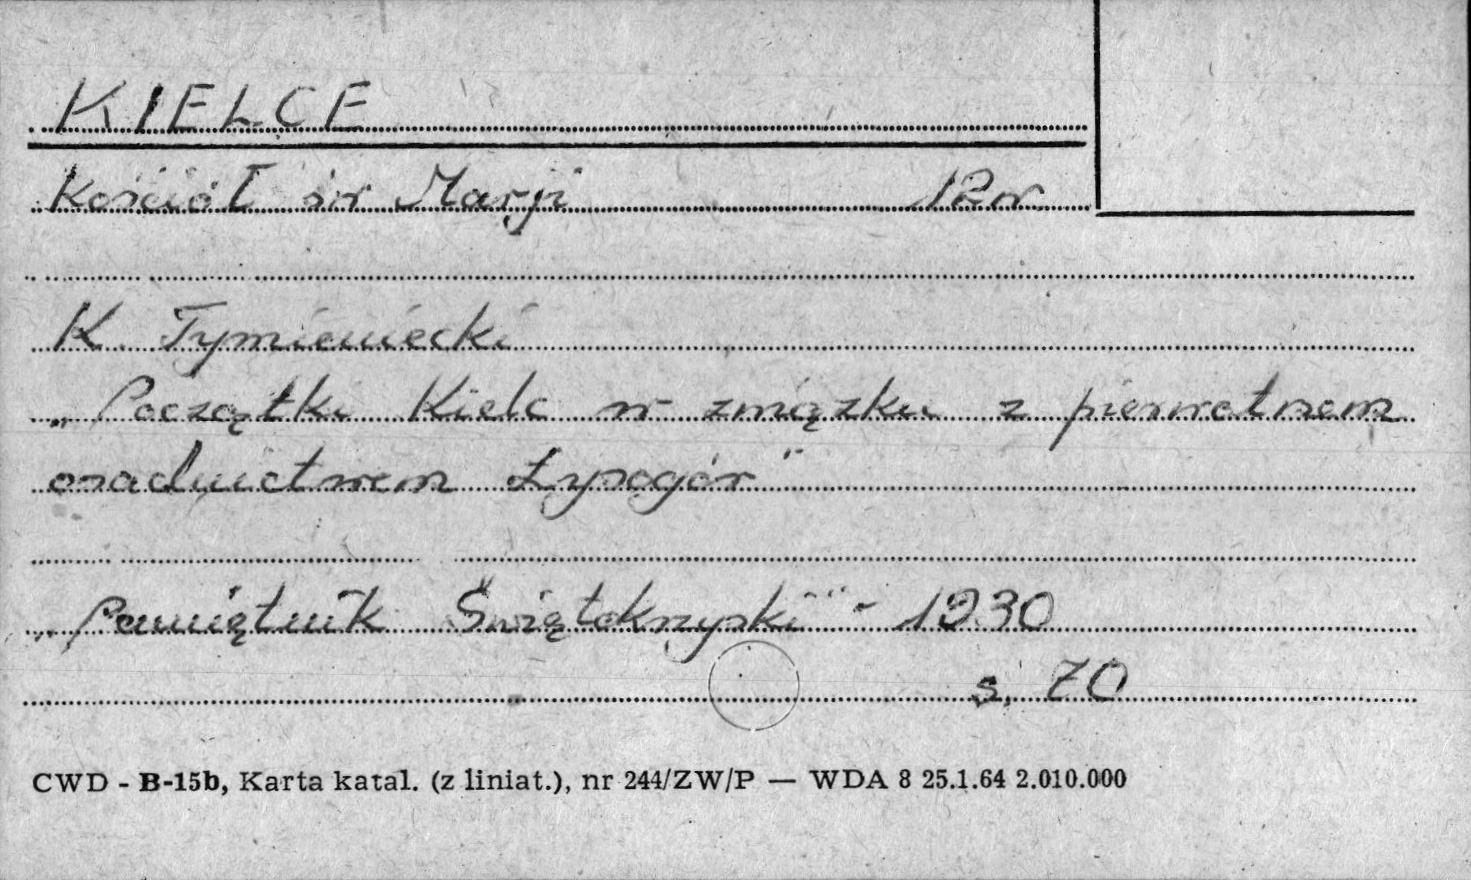 KIELCE
Kościół św Marji 12w
K. Tymieniecki
„Początki Kielc w związku z pierwotnem
osadnictwem Łysogór"
„Pamiętnik Świętokrzyski" - 1930
s. 70
CWD - B-15b, Karta katal. (z liniat.), nr 244/ZW/P — WDA 8 25.1.64 2.010.000